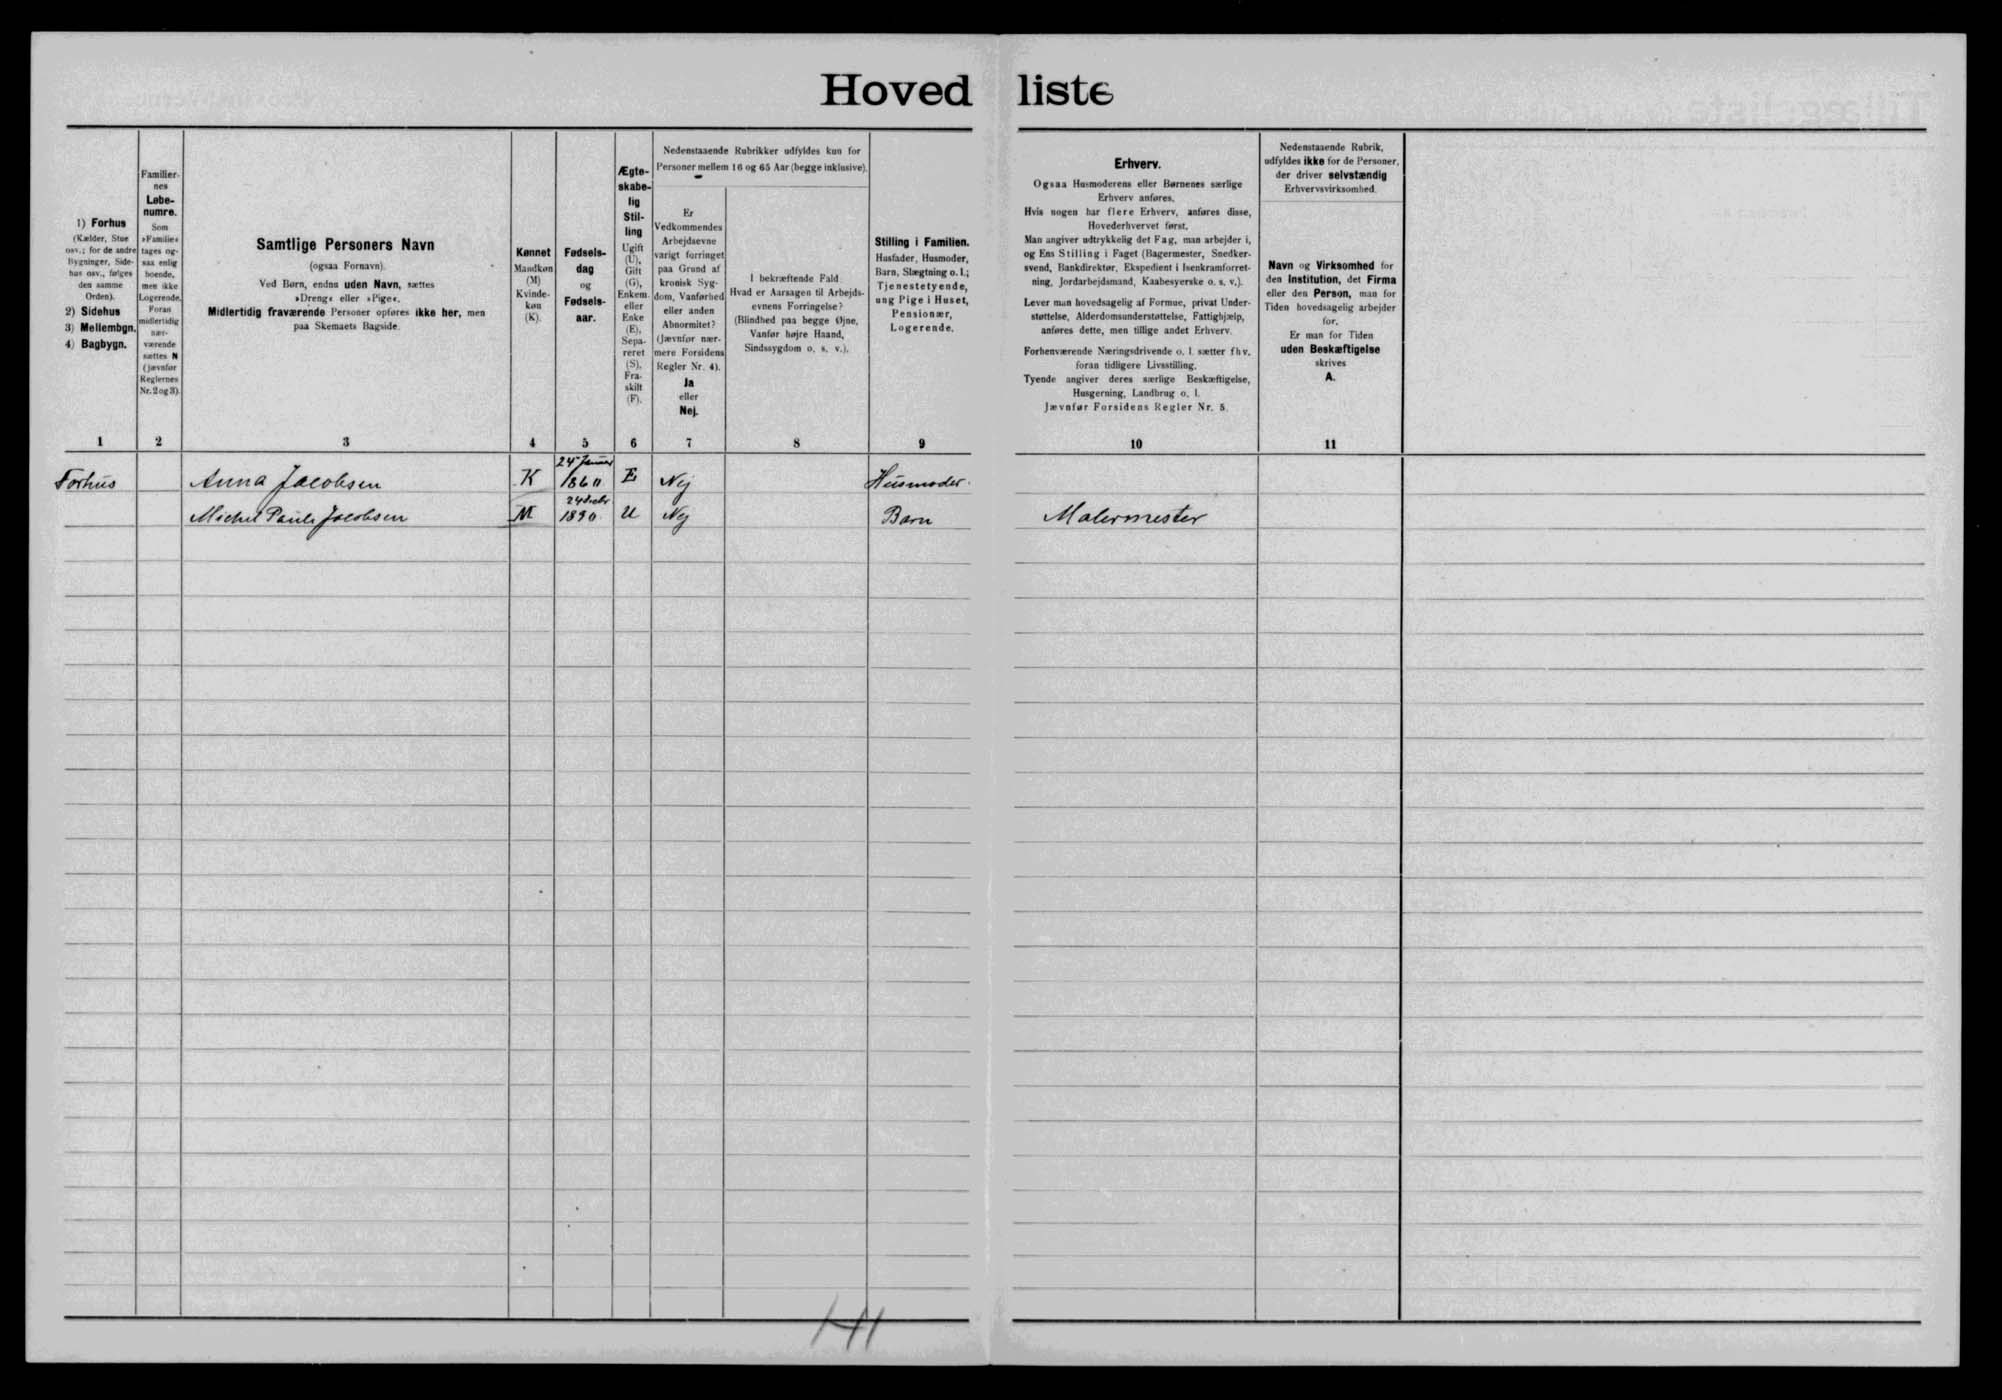 Hovedliste
1) Forhus
(Kælder, Stue
osv.; for de andre
Bygninger, Side-
hus osv., følges
den samme
Orden).
2) Sidehus
3) Mellembgn.
4) Bagbygn.
1
Familier-
nes
Løbe-
numre.
Som
»Familie«
tages og-
saa enlig
boende,
men ikke
Logerende.
Foran
midlertidig
nær-
værende
sættes N
(jævnfør
Reglernes
Nr. 2 og 3).
2
Samtlige Personers Navn
(ogsaa Fornavn).
Ved Børn, endnu uden Navn, sættes
»Dreng« eller »Pige«.
Midlertidig fraværende Personer opføres ikke her, men
paa Skemaets Bagside.
3
Kønnet
Mandkøn
(M)
Kvinde-
køn
(K).
4
Fødsels-
dag
og
Fødsels-
aar.
5
Ægte-
skabe-
lig
Stil-
ling
Ugift
(U),
Gift
(G),
Enkem.
eller
Enke
(E),
Sepa-
reret
(S),
Fra-
skilt
(F).
6
Nedenstaaende Rubrikker udfyldes kun for
Personer mellem 16 og 65 Aar (begge inklusive).
Er
Vedkommendes
Arbejdsevne
varigt forringet
paa Grund af
kronisk Syg-
dom, Vanførhed
eller anden
Abnormitet?
(Jævnfør nær-
mere Forsidens
Regler Nr. 4).
Ja
eller
Nej.
7
I bekræftende Fald.
Hvad er Aarsagen til Arbejds-
evnens Forringelse?
(Blindhed paa begge Øjne,
Vanfør højre Haand,
Sindssygdom o. s. v.).
8
Stilling i Familien.
Husfader, Husmoder,
Barn, Slægtning o. l.;
Tjenestetyende,
ung Pige i Huset,
Pensionær,
Logerende.
9
Erhverv.
Ogsaa Husmoderens eller Børnenes særlige
Erhverv anføres.
Hvis nogen har flere Erhverv, anføres disse,
Hovederhvervet først.
Man angiver udtrykkelig det Fag, man arbejder i,
og Ens Stilling i Faget (Bagermester, Snedker-
svend, Bankdirektør, Ekspedient i Isenkramforret-
ning, Jordarbejdsmand, Kaabesyerske o. s. v.).
Lever man hovedsagelig af Formue, privat Under-
støttelse, Alderdomsunderstøttelse, Fattighjælp,
anføres dette, men tillige andet Erhverv.
Forhenværende Næringsdrivende o. l. sætter fhv.
foran tidligere Livsstilling.
Tyende angiver deres særlige Beskæftigelse,
Husgerning, Landbrug o. l.
Jævnfør Forsidens Regler Nr. 5.
10
Nedenstaaende Rubrik,
udfyldes ikke for de Personer,
der driver selvstændig
Erhvervsvirksomhed.
Navn og Virksomhed for
den Institution, det Firma
eller den Person, man for
Tiden hovedsagelig arbejder
for.
Er man for Tiden
uden Beskæftigelse
skrives
A.
11
Forhus Anna Jacobsen K 24 Januar 1860 E Nej Husmoder.
Michel Pauli Jacobsen M 1890 U Nej Barn Malermester